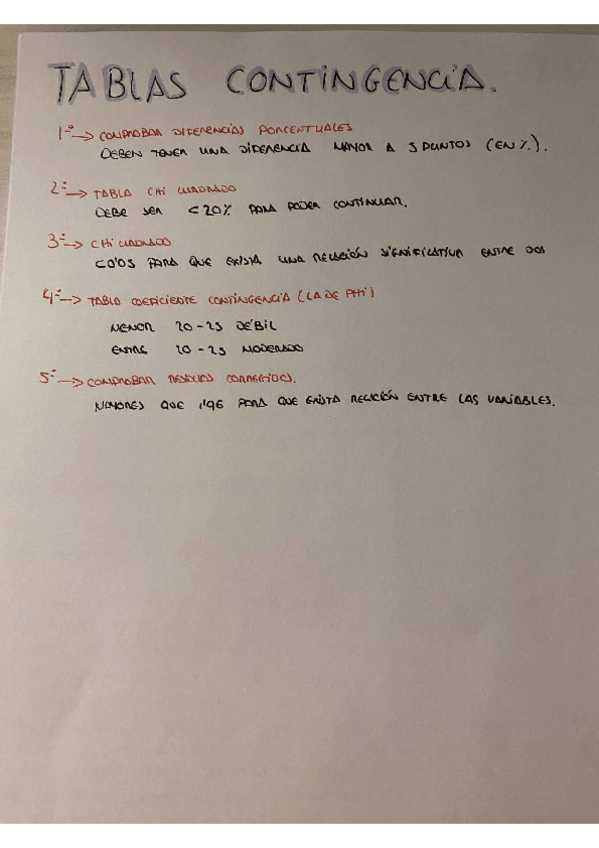 TABLAS CONTINGENCIA.
1º-> COMPROBAR DIFERENCIAS PORCENTUALES
DEBEN TENER UNA DIFERENCIA MAYOR A 5 PUNTOS (EN %).
2º-> TABLA CHI CUADRADO
DEBE SER <20% PARA PODER CONTINUAR.
3º-> CHI CUADRADO
<0'05 PARA QUE EXISTA UNA RELACIÓN SIGNIFICATIVA ENTRE DOS
4º-> TABLA COEFICIENTE CONTINGENCIA (LA DE PHI)
MENOR 20-25 DÉBIL
ENTRE 20-25 MODERADO
5º-> COMPROBAR RESIDUOS CORREGIDOS.
MAYORES QUE 1'96 PARA QUE EXISTA RELACIÓN ENTRE LAS VARIABLES.